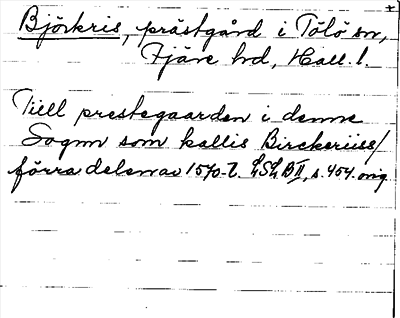 Björkris, prästgård i Tölö sn,
Fjäre hd, Hall. l.
Till prestegaarden i denne
Sognn som kallis Birckeriiss/
förra delen av 1570-t. LSLB II, s. 454. orig